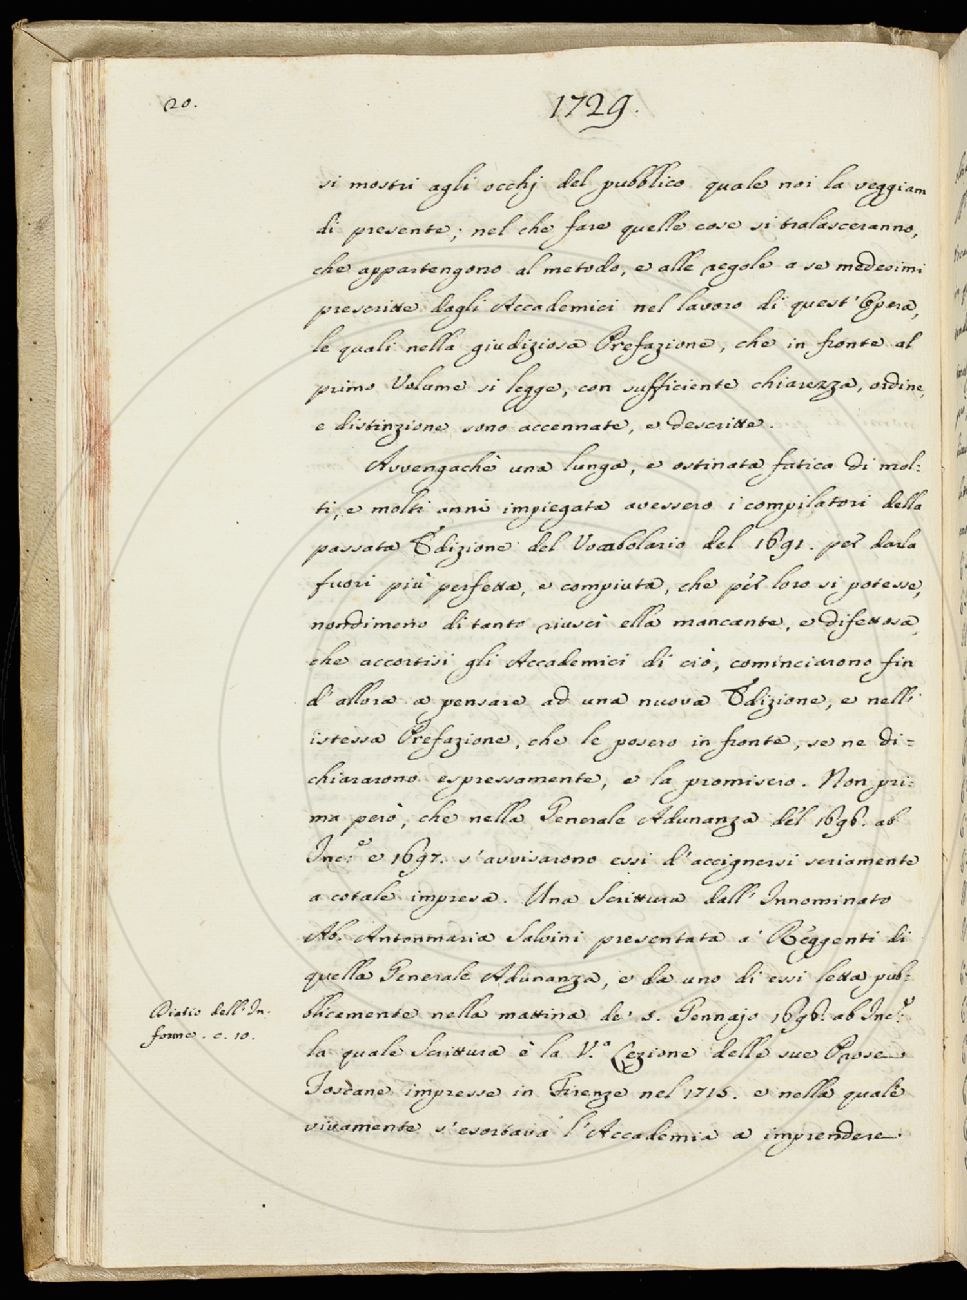 20.
1729.
si mostri agli occhj del pubblico quale noi la veggiam
di presente; nel che fare quelle cose si tralasceranno,
che appartengono al metodo, e alle regole a se medesimi
prescritte dagli Accademici nel lavoro di quest'Opera,
le quali nella giudiziosa Prefazione, che in fronte al
primo Volume si legge, con sufficiente chiarezza, ordine,
e distinzione sono accennate, e descritte.
Avvengachè una lunga, e ostinata fatica di mol=
ti, e molti anni impiegata avessero i compilatori della
passata Edizione del Vocabolario del 1691. per darla
fuori più perfetta, e compiuta, che per loro si potesse,
nondimeno di tanto riuscì ella mancante, e difettosa,
che accortisi gli Accademici di ciò, cominciarono fin
d'allora a pensare ad una nuova Edizione, e nell'
istessa Prefazione, che le posero in fronte, se ne di=
chiararono espressamente, e la promisero. Non pri=
ma però, che nella Generale Adunanza del 1696. ab
Inc.º e 1697. s'avvisarono essi d'accignersi seriamente
a cotale impresa. Una Scrittura dall'Innominato
Ab. Antonmaria Salvini presentata a' Reggenti di
quella Generale Adunanza, e da uno di essi letta pub=
blicamente nella mattina de' 5. Gennajo 1696. ab Inc.º
Diario dell'In.
forme. c. 10.
la quale Scrittura è la V.ª Lezione delle sue Prose
Toscane impresse in Firenze nel 1715. e nella quale
vivamente s'esortava l'Accademia a imprendere